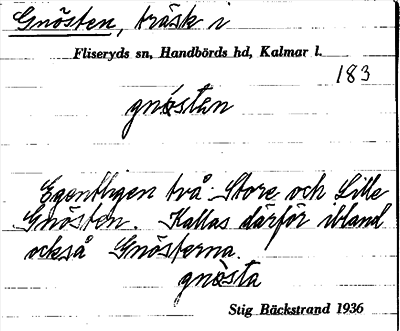 Gnösten, träsk i
Fliseryds sn, Handbörds hd, Kalmar l.
183
gnöstan
Egentligen två: Store och Lille
Gnösten. Kallas därför ibland
också Gnösterna.
gnösta
Stig Bäckstrand 1936